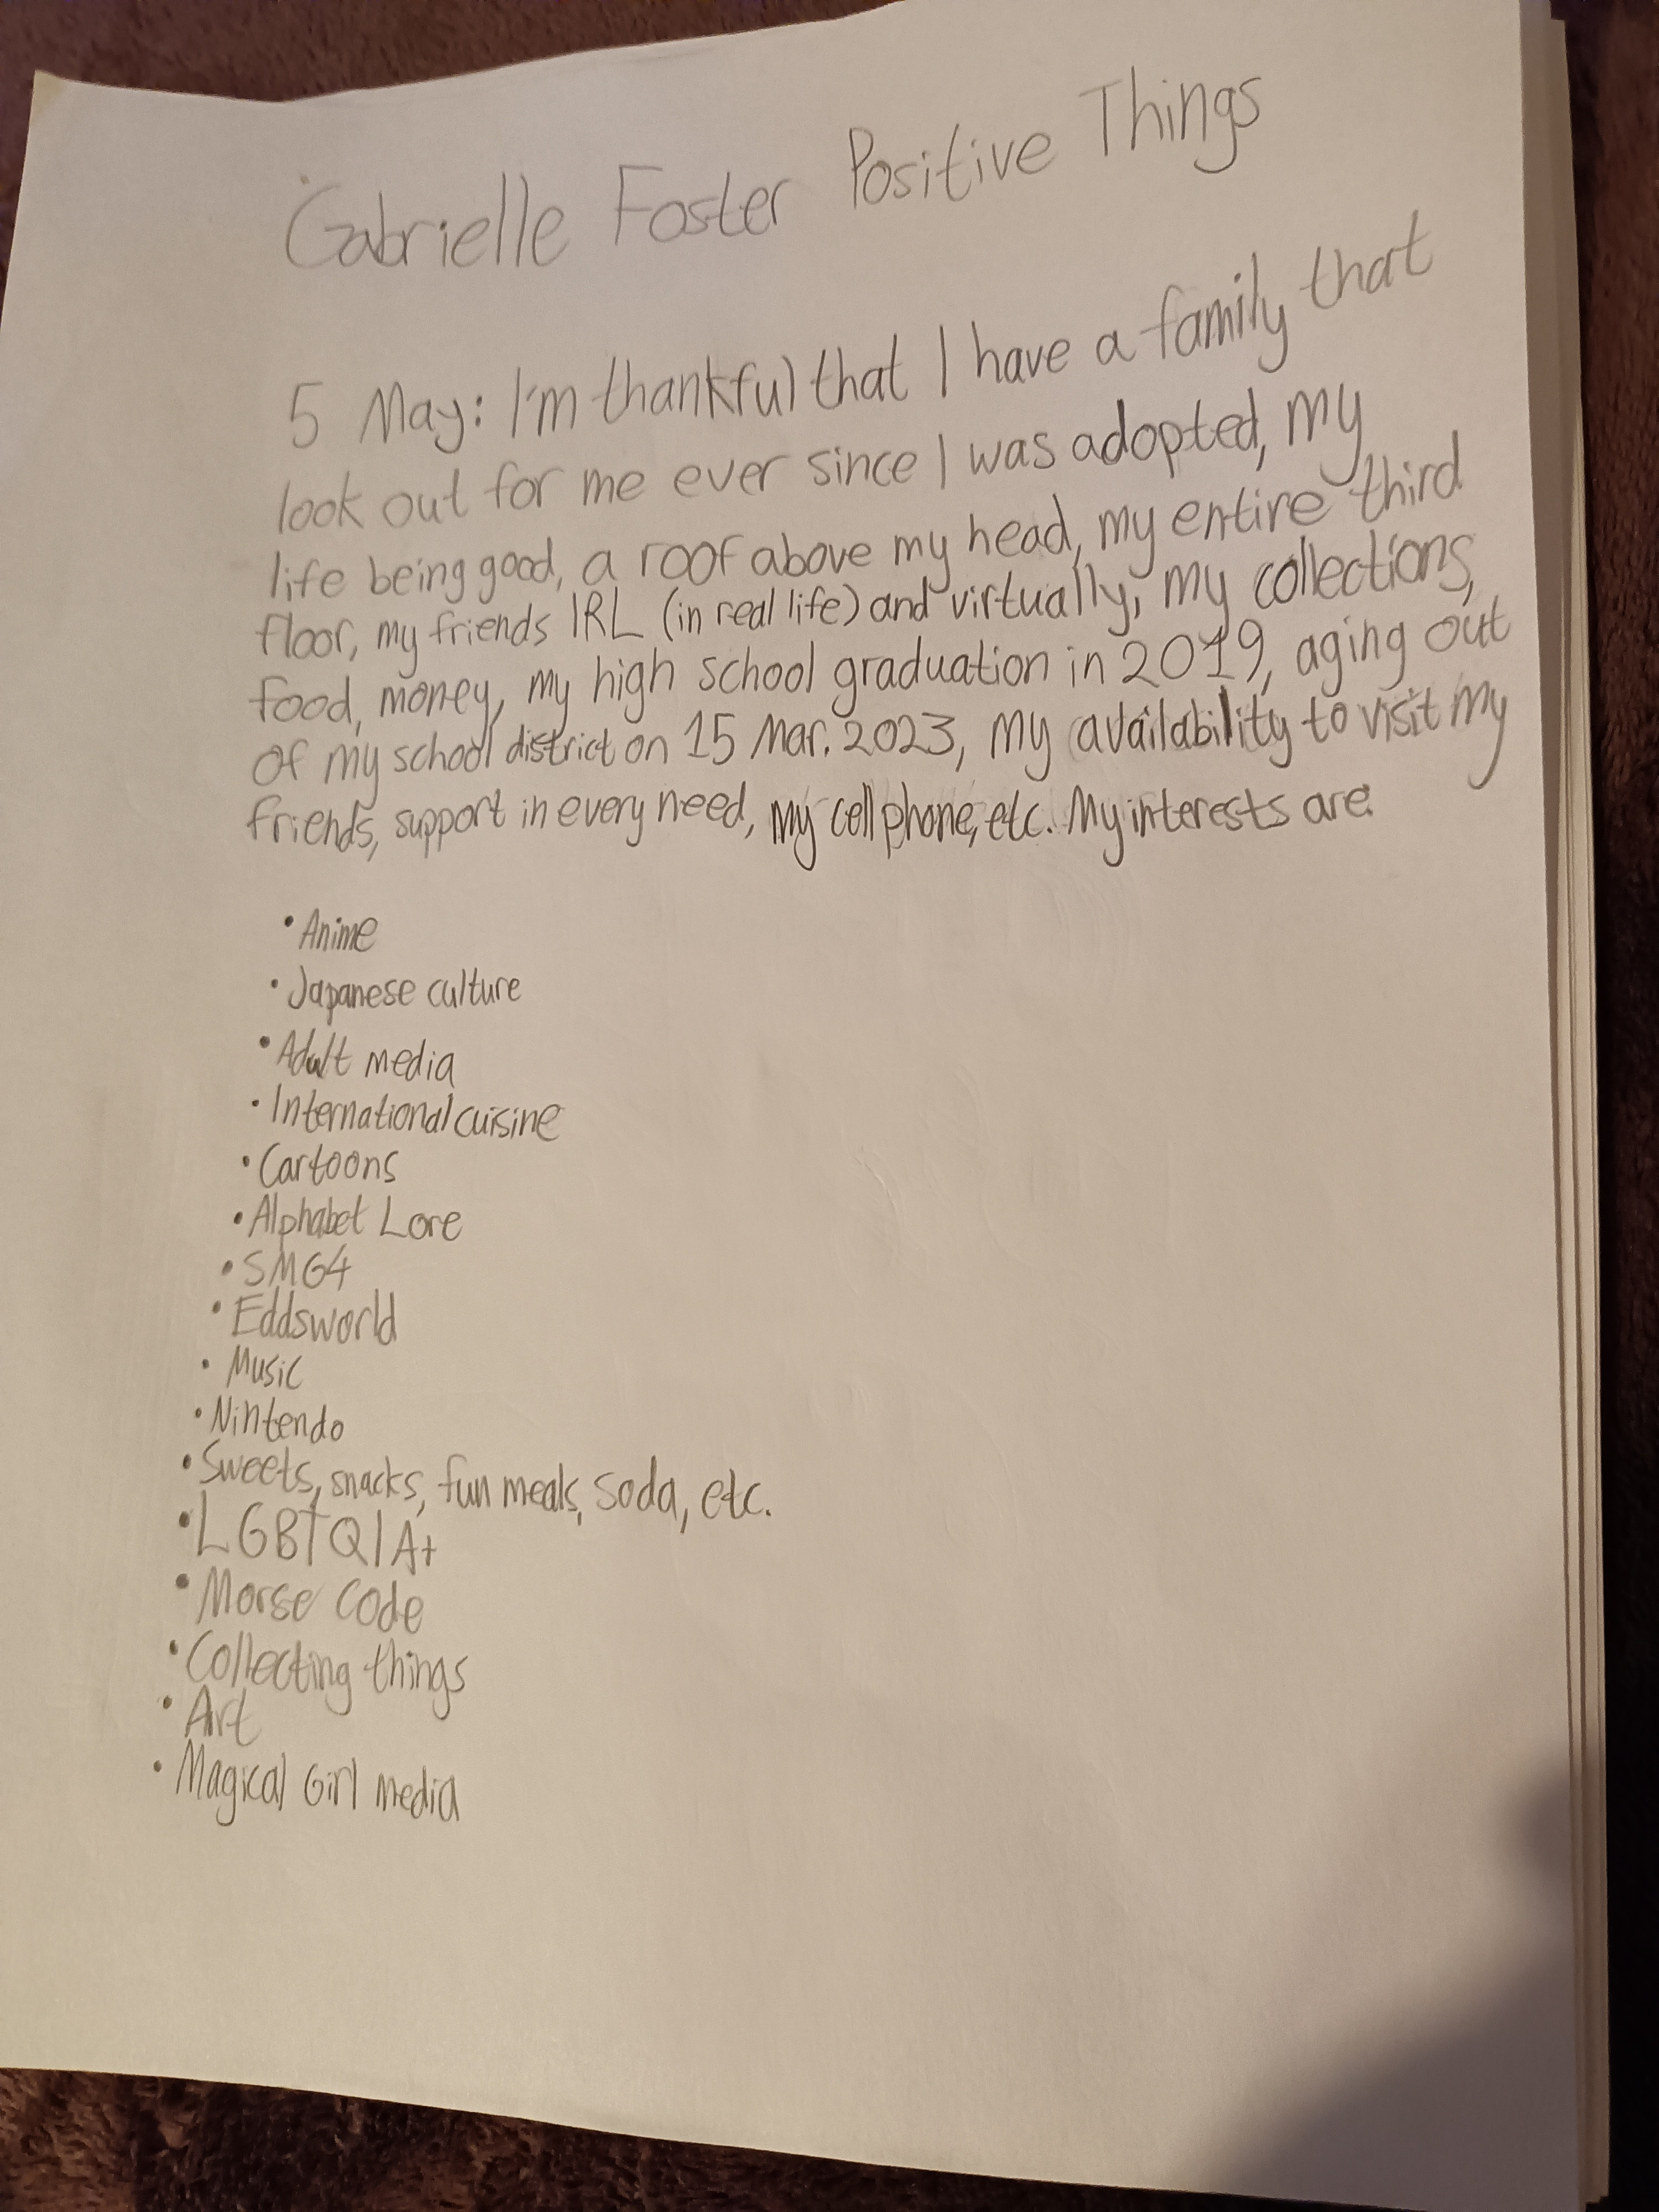 Gabrielle Foster Positive Things
5 May: I'm thankful that I have a family that
look out for me ever since I was adopted, my
life being good, a roof above my head, my entire third
floor, my friends IRL (in real life) and virtually, my collections,
food, money, my high school graduation in 2019, aging out
of my school district on 15 Mar. 2023, my availability to visit my
friends, support in every need, my cell phone, etc. My interests are:
• Anime
• Japanese culture
• Adult media
• International cuisine
• Cartoons
• Alphabet Lore
• SMG4
• Eddsworld
• Music
• Nintendo
• Sweets, snacks, fun meals, soda, etc.
• LGBTQIA+
• Morse Code
• Collecting things
• Art
• Magical Girl media